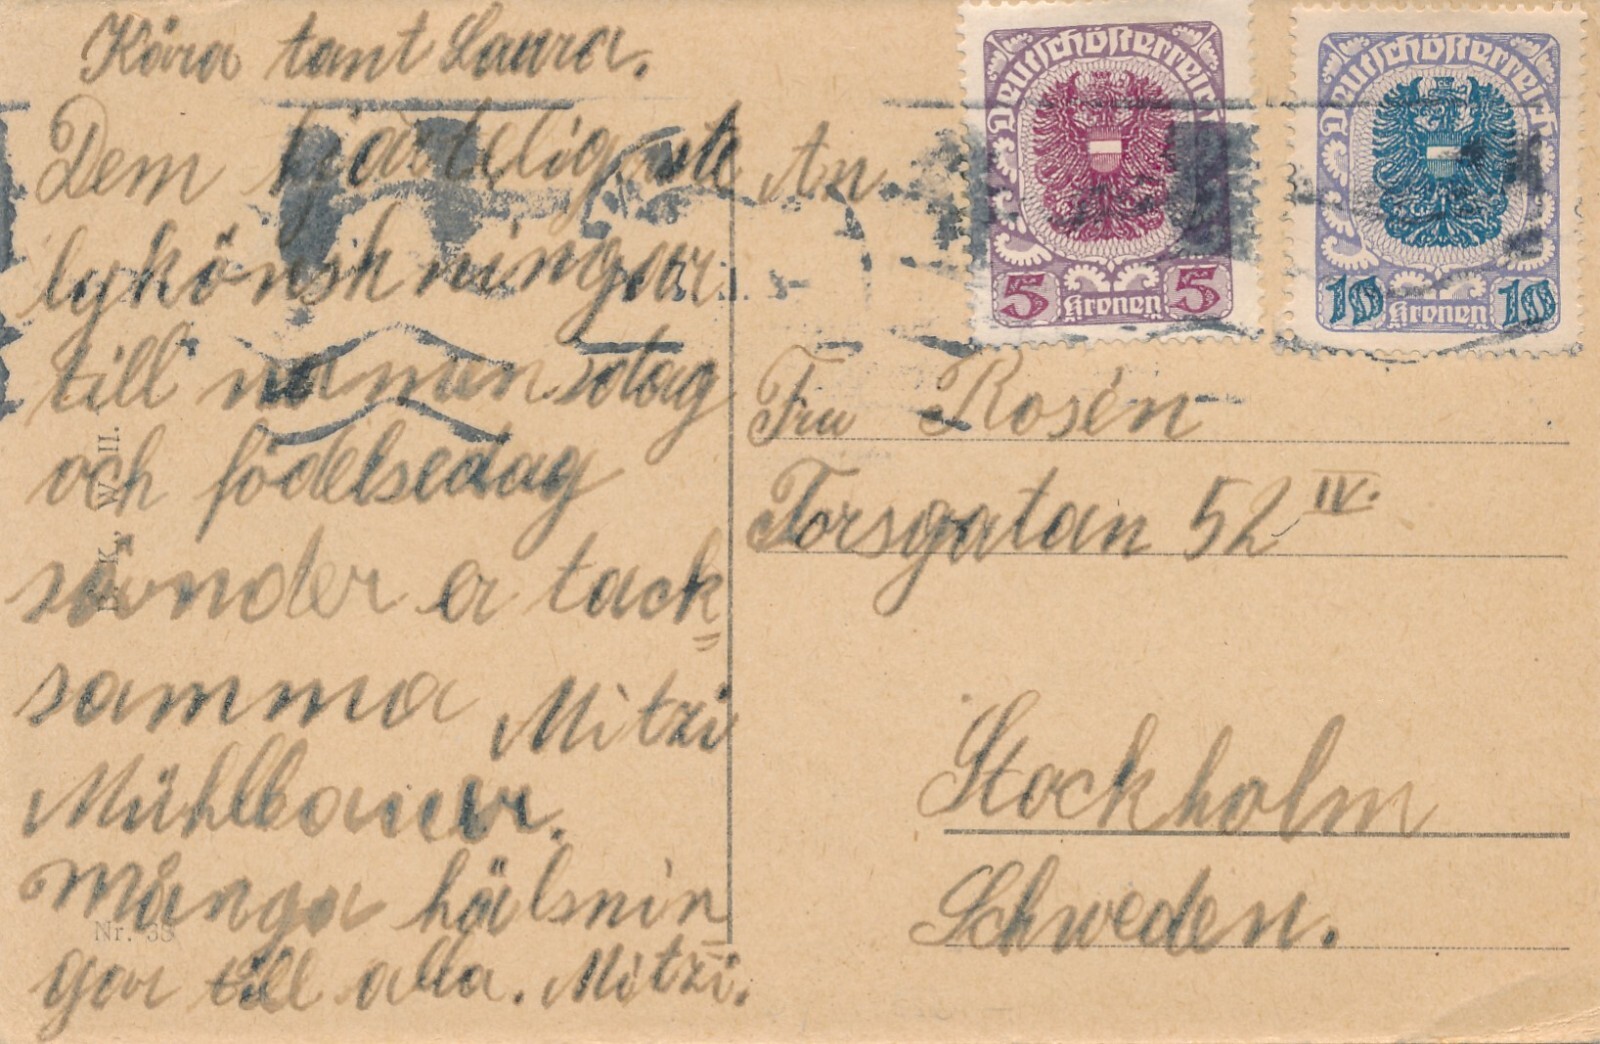 Kära tant Laura.
Dem hjärteligaste
lykönskningar
till namensdag
och födelsedag
sänder a tack=
samma Mitzi
Mühlbauer.
Många hälsnin=
gar till alla. Mitzi.
Nr. 35
W. II.
Deutschösterreich
5 Kronen 5
Deutschösterreich
10 Kronen 10
An
Fru Rosén
Torsgatan 52 IV.
Stockholm
Schweden.